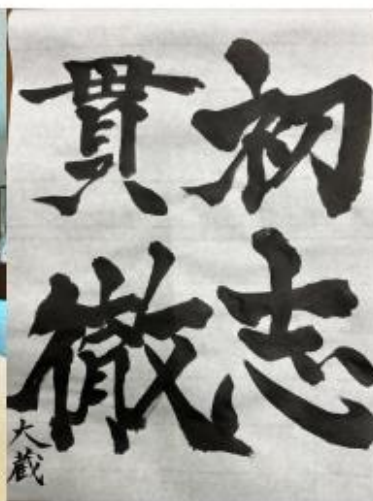 初志
貫徹
大蔵